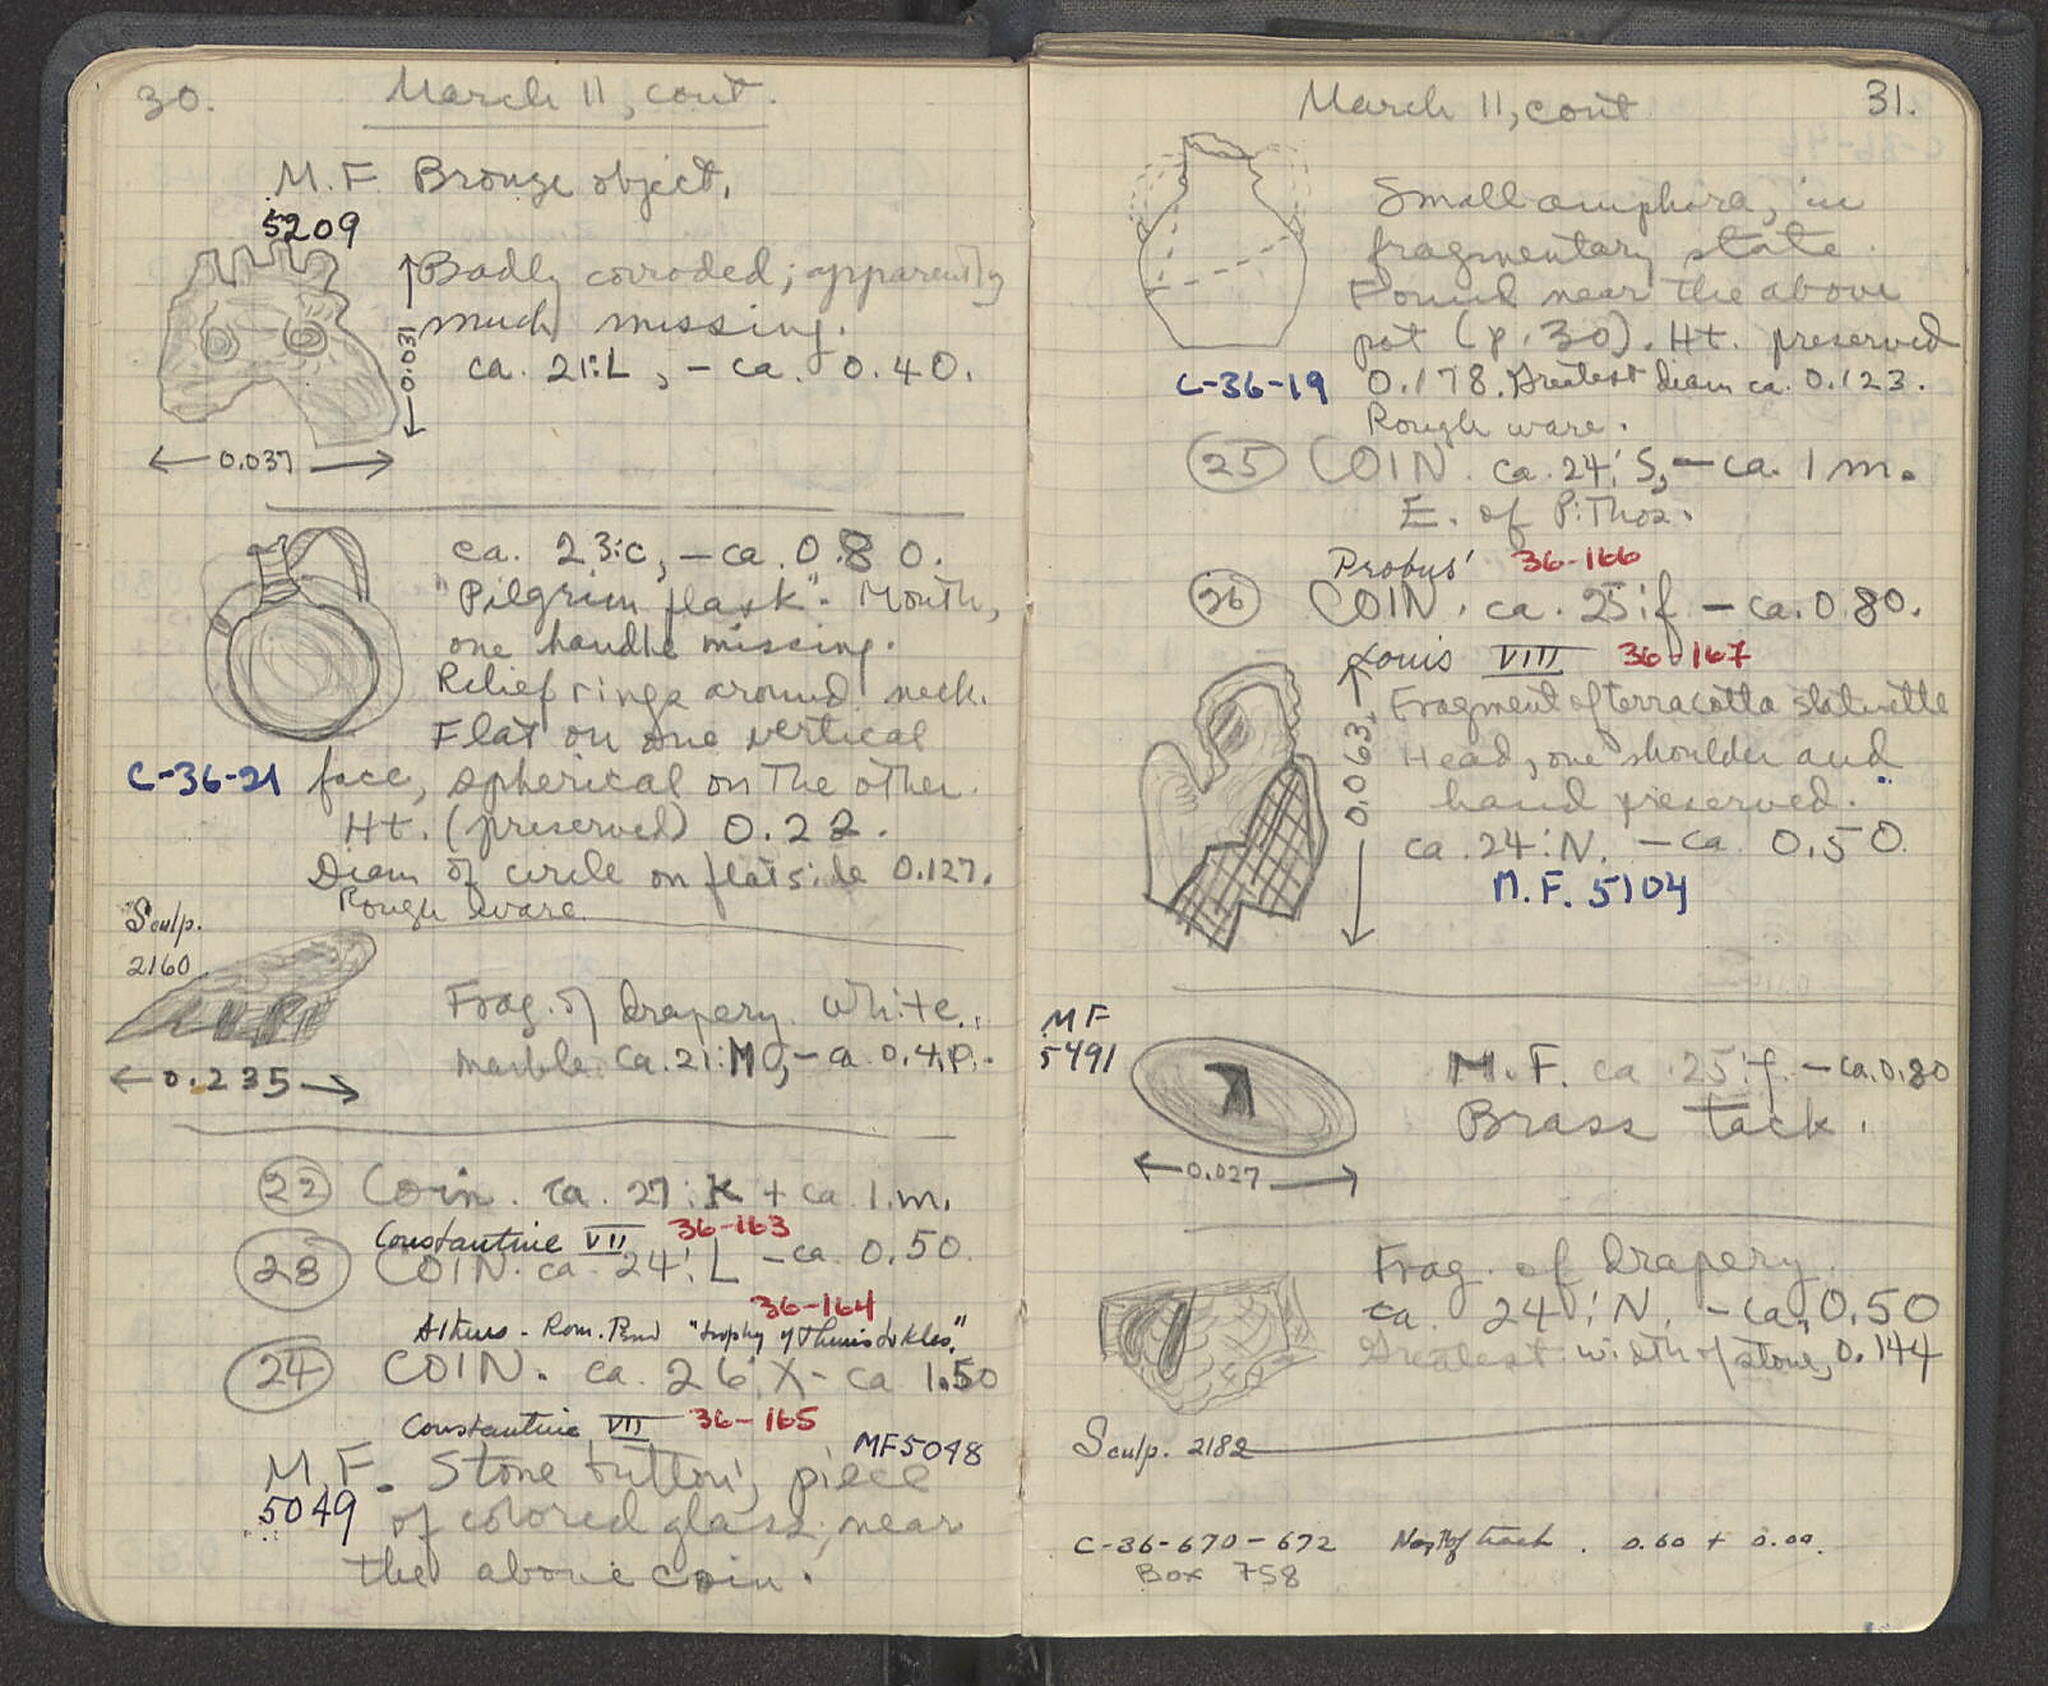 30.
March 11, cont.
M.F. Bronze object,
5209
Badly corroded; apparently
much missing.
ca. 21:L, - ca. 0.40.
0.031
0.037
ca. 23:C, - ca. 0.80.
"Pilgrim flask". Mouth,
one handle missing.
Relief rings around neck.
Flat on one vertical
C-36-21 face, spherical on the other.
Ht. (preserved) 0.22.
Diam of circle on flat side 0.127.
Rough ware.
Sculp.
2160
Frag. of drapery. White
marble. Ca. 21: - ca 0.40.
0.235
22 Coin. ca. 27:K + ca 1.m.
Constantine VII 36-163
23 COIN. ca. 24:L - ca. 0.50.
36-164
Athens - Rom. "trophy of Themistokles."
24 COIN. ca. 26:X - ca 1.50
Constantine VII 36-165
MF5048
M.F. Stone button; piece
5049 of colored glass; near
the above coin.
March 11, cont
31.
Small amphora, in
fragmentary state.
Found near the above
pot (p. 30). Ht. preserved
C-36-19 0.178. Greatest diam ca. 0.123.
Rough ware.
25 COIN. ca. 24:S, - ca. 1 m.
E. of Pithos.
Probus 36-166
26 COIN. ca. 25:f - ca. 0.80.
Louis VIII 36-167
Fragment of terracotta statuette
Head, one shoulder and
hand preserved.
ca. 24:N. - ca 0.50.
M.F. 5104
0.063
MF
5491
M.F. ca 25:f. - ca. 0.80
Brass tack.
0.027
Frag. of drapery.
ca. 24:N. - ca. 0.50
Greatest width of stone, 0.144
Sculp. 2182
C-36-670-672 North of track. 0.60 + 0.00.
Box 758